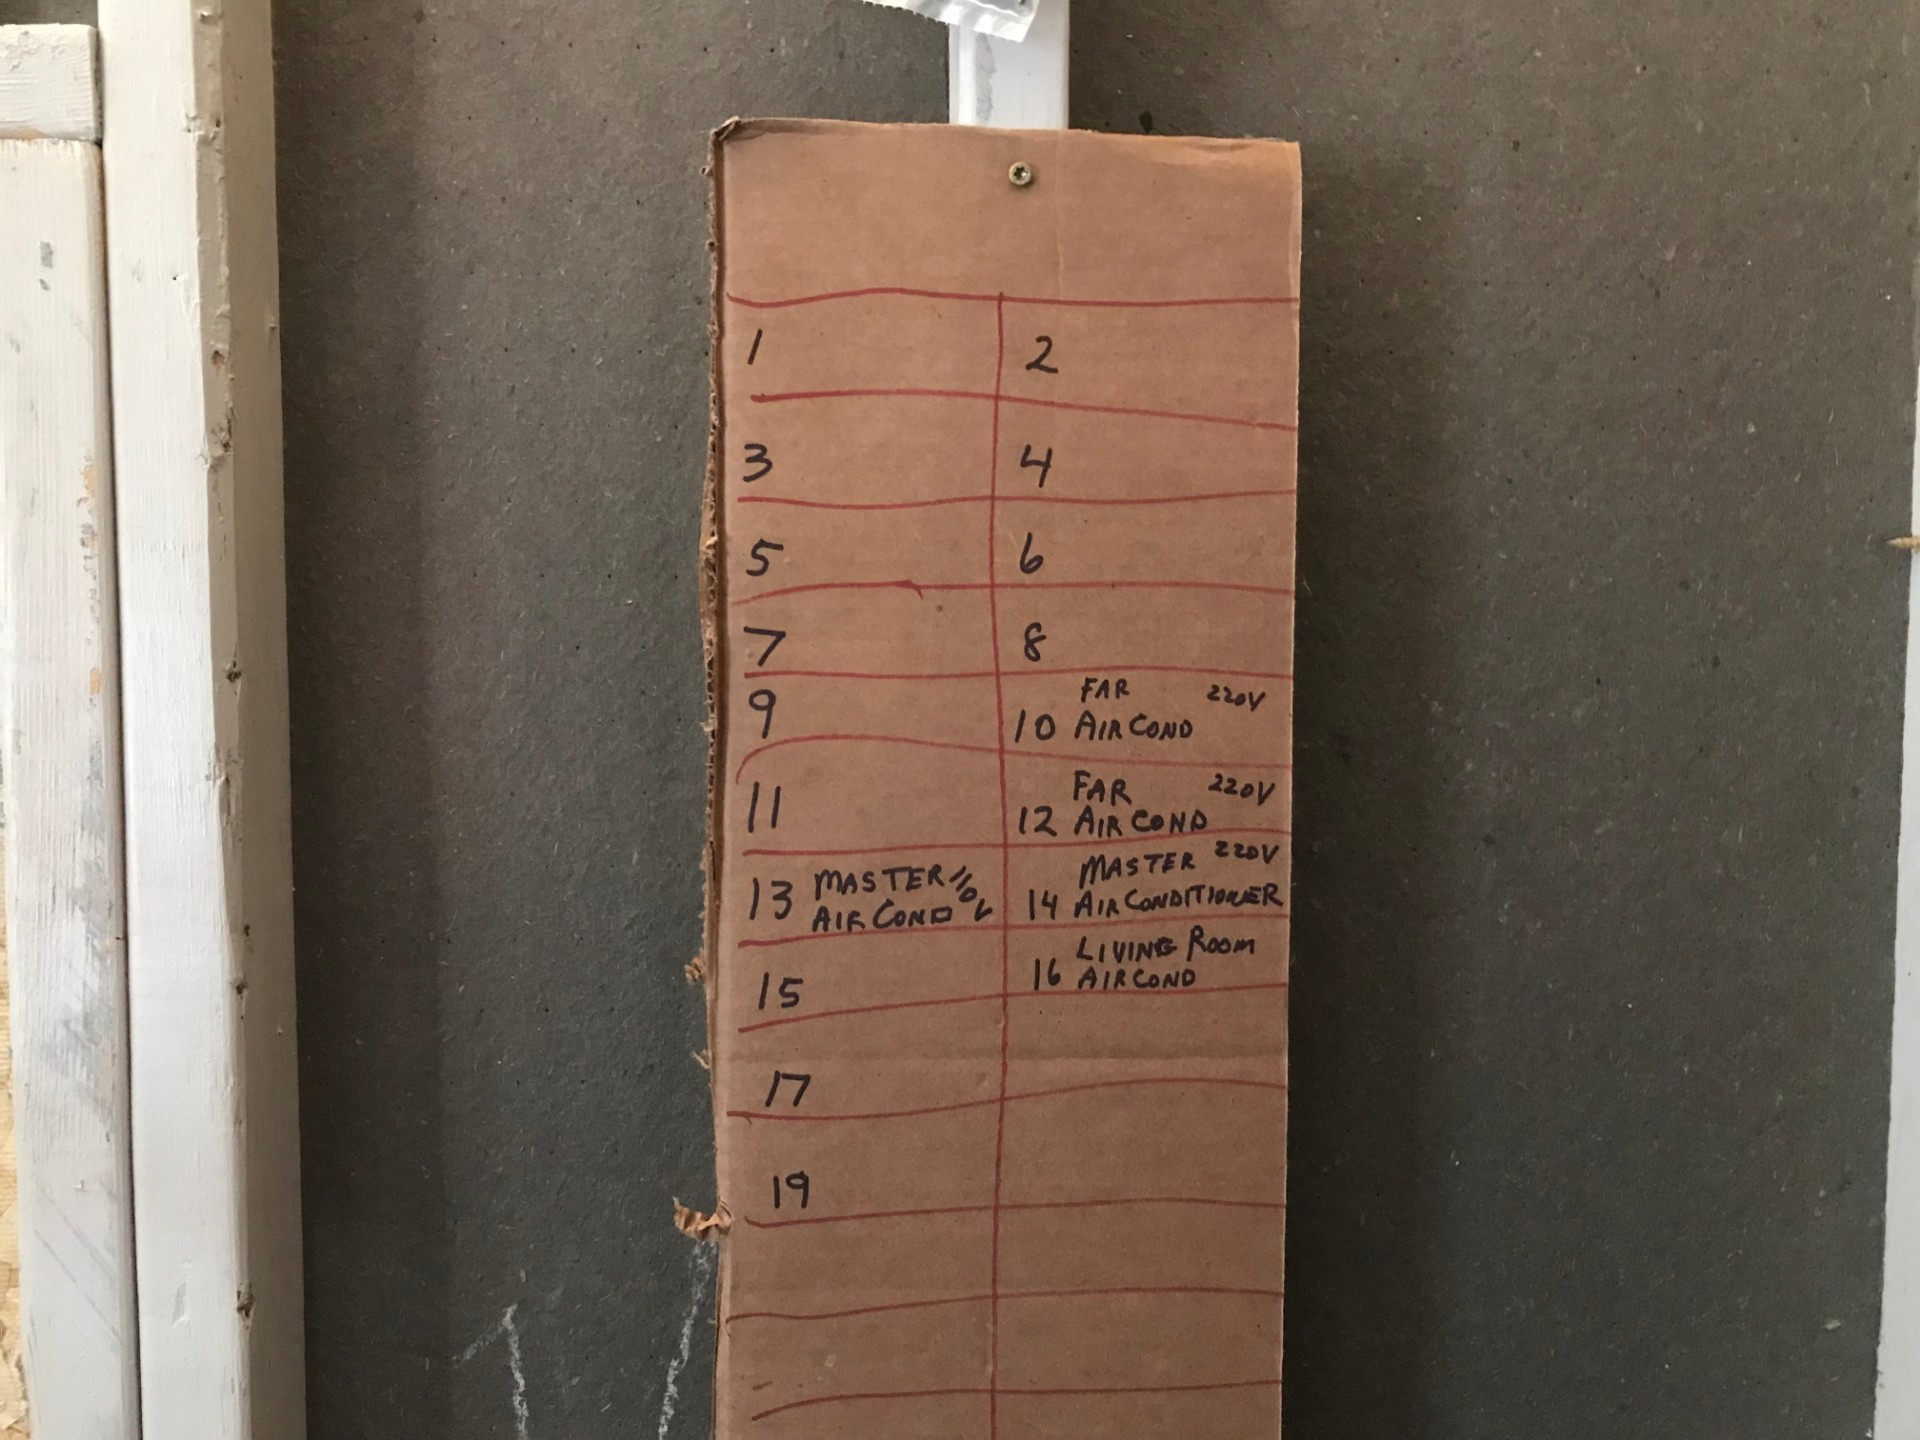 1 2
3 4
5 6
7 8
9
FAR 220V
10 AIR COND
11
FAR 220V
12 AIR COND
13 MASTER 110V
AIR COND
MASTER 220V
14 AIR CONDITIONER
15
LIVING ROOM
16 AIR COND
17
19